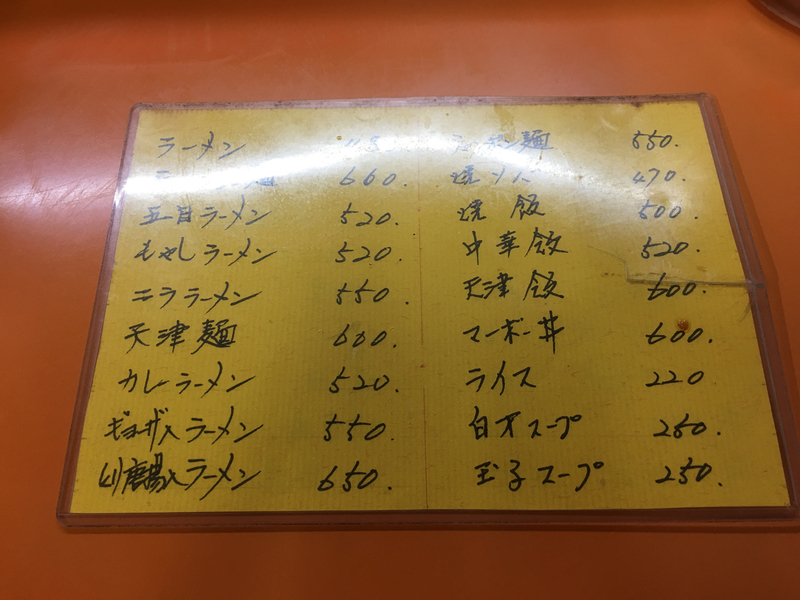 ラーメン
麺 660.
五目ラーメン 520.
もやしラーメン 520.
ニララーメン 550.
天津麺 600.
カレーラーメン 520.
ギョーザ入ラーメン 550.
唐揚入ラーメン 650.
麺 550.
焼ソバ 470.
焼飯 500.
中華飯 520.
天津飯 600.
マーボー丼 600.
ライス 220
白才スープ 250.
玉子スープ 250.